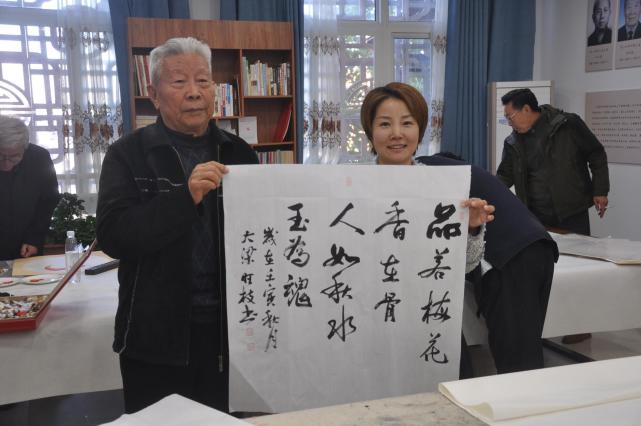 品若梅花
香在骨
人如秋水
玉为魂
岁在壬寅秋月
大梁旺枝书